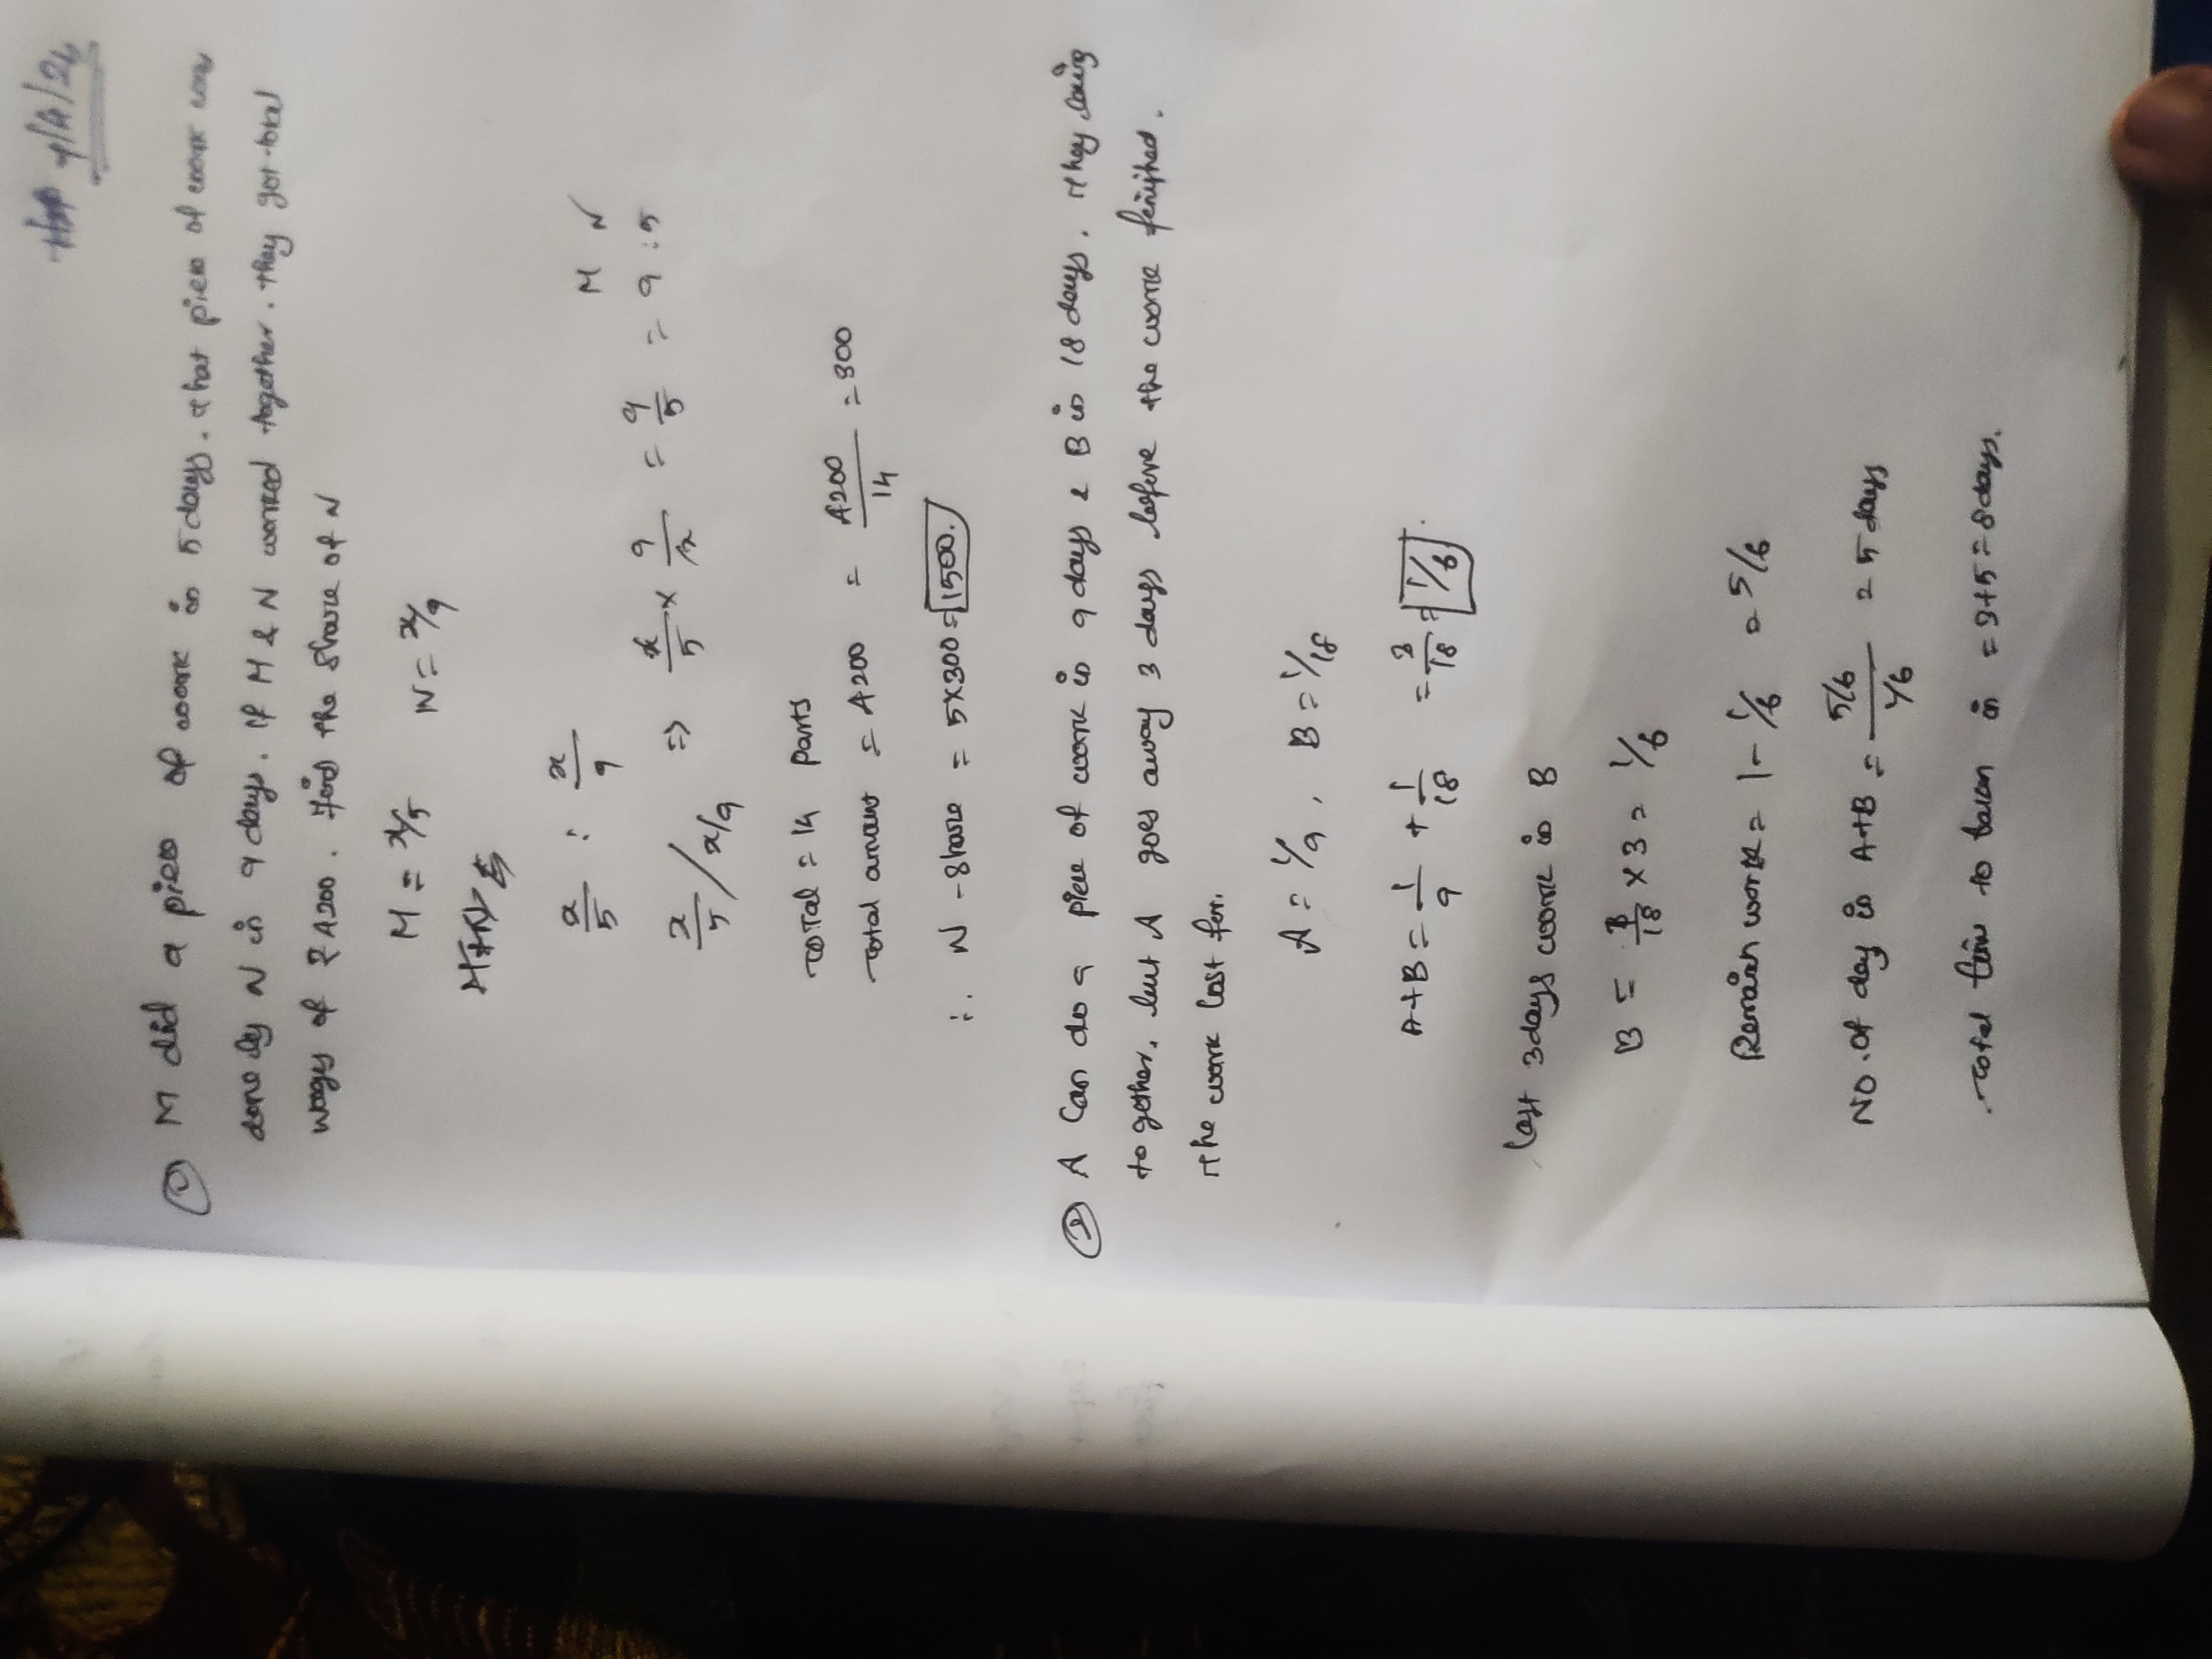 7/4/24
① M did a piece of work in 5 days. That piece of work was
done by N in 9 days. If M & N worked together. They got total
wages of ₹ 4200. Find the Share of N
M = x/5 N = x/9
M+N =
x/5 : x/9
M N
x/5 / x/9 => x/5 × 9/x = 9/5 = 9 : 5
Total = 14 Parts
Total amount = 4200 = 4200/14 = 300
∴ N - Share = 5×300 = 1500.
② A Can do a piece of work in 9 days & B in 18 days. They
together, but A goes away 3 days before the work finished.
The work last for.
A = 1/9, B = 1/18
A+B = 1/9 + 1/18 = 3/18 = 1/6
Last 3 days work in B
B = 1/18 × 3 = 1/6
Remain work = 1 - 1/6 = 5/6
No. of day in A+B = 5/6 / 1/6 = 5 days
Total time to taken in = 3+5 = 8 days.